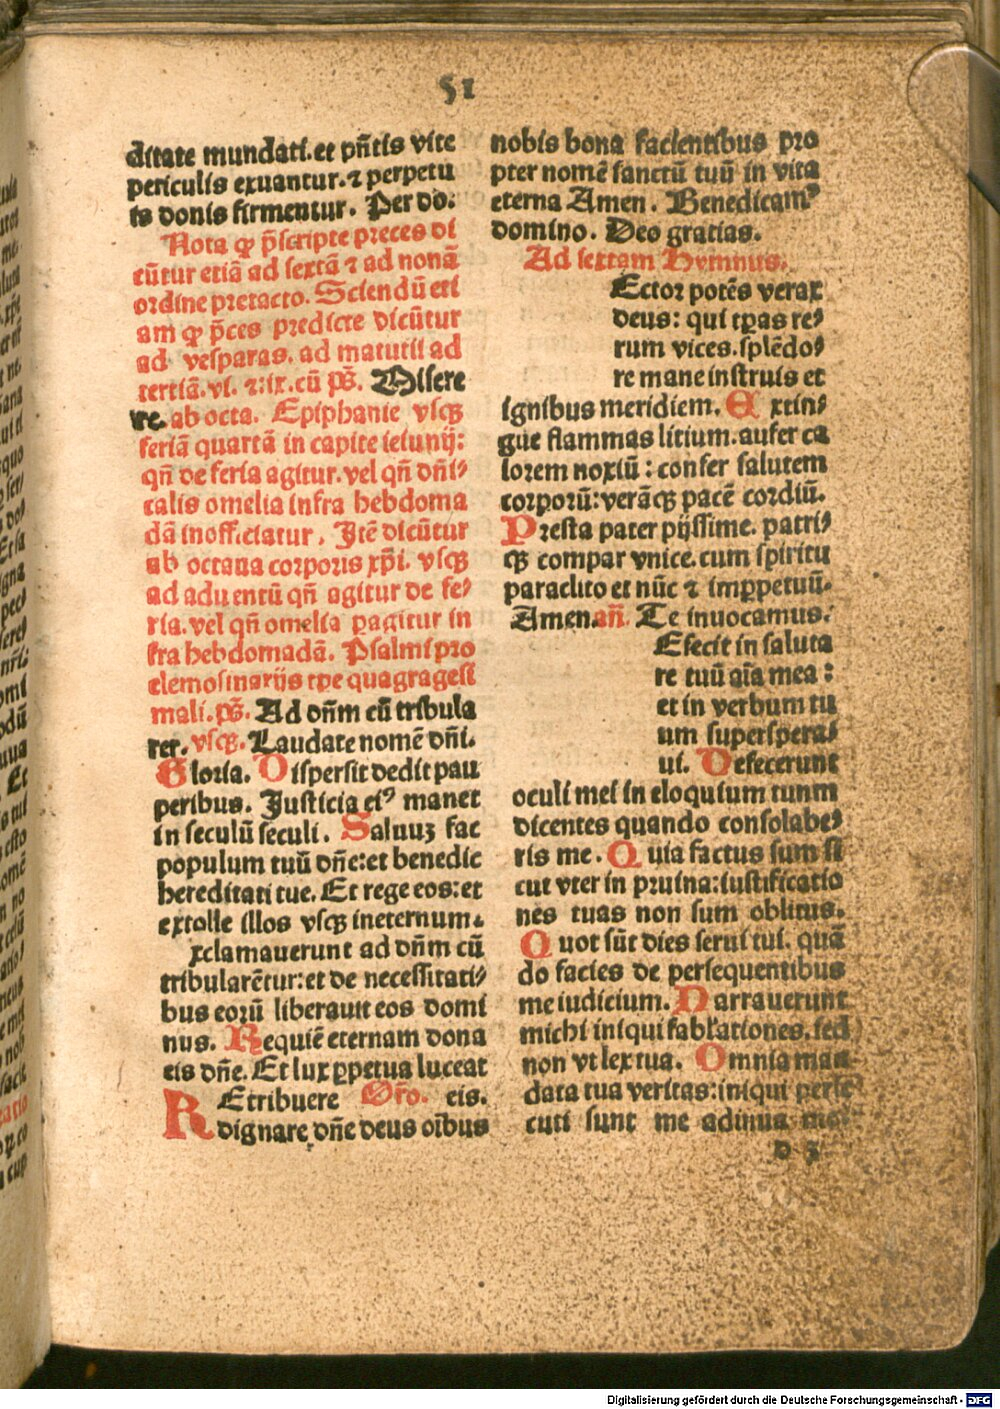 51
ditate mundati.et pñtis vite
periculis exuantur.⁊ perpetu
is donis firmentur. Per do.
Nota ꝙ p̃scripte preces di
cūtur etiā ad sextā ⁊ ad nonā
ordine pretacto. Sciendū eti
am ꝙ p̃ces predicte dicūtur
ad vesparas. ad matuti᷒ ad
tertiā.vi. ⁊.ix.cū ps̃. Misere
re. ab octa. Epiphanie vsqꝫ
feriā quartā in capite ieiunij:
qñ de feria agitur.vel qñ dñi⸗
calis omelia infra hebdoma
dā inofficiatur. Itē dicūtur
ab octaua corporis xp̃i. vsqꝫ
ad aduentū qñ agitur de fe⸗
ria.vel qñ omelia ꝑagitur in
fra hebdomadā. Psalmi pro
elemosinarijs tꝑe quagragesi
mali.ps̃. Ad dñm cū tribula
rer. vsqꝫ. Laudate nomē dñi.
Gloria. Dispersit dedit pau
peribus. Justicia eiꝰ manet
in seculū seculi. Saluuꝫ fac
populum tuū dñe:et benedic
hereditati tue. Et rege eos:et
extolle illos vsqꝫ ineternum.
xclamauerunt ad dñm cū
tribularētur:et de necessitati⸗
bus eorū liberauit eos domi
nus. Requiē eternam dona
eis dñe. Et lux ꝑpetua luceat
Etribuere Oŕo. eis.
R dignare dñe deus oībus
nobis bona facientibus pro
pter nomē sanctū tuū in vita
eterna Amen. Benedicamꝰ
domino. Deo gratias.
Ad sextam Hymnus.
Ector potēs verax
deus: qui tꝑas re⸗
rum vices.splēdo⸗
re mane instruis et
ignibus meridiem. Extin⸗
gue flammas litium.aufer ca
lorem noxiū: confer salutem
corporū:verāqꝫ pacē cordiū.
Presta pater pijssime. patri⸗
qꝫ compar vnice.cum spiritu
paraclito et nūc ⁊ imꝑpetuū.
Amen.añ. Te inuocamus.
Efecit in saluta
re tuū aīa mea:
et in verbum tu
um supersperα⸗
ui. Defecerunt
oculi mei in eloquium tuum
dicentes quando consolabe⸗
ris me. Quia factus sum si
cut vter in pruina:iustificatio
nes tuas non sum oblitus.
Quot sūt dies serui tui. quā
do facies de persequentibus
me iudicium. Narrauerunt
michi iniqui fabl̕ationes.sed
non vt lex tua. Omnia man
data tua veritas:iniqui perse
cuti sunt me adiuua me.
D 3
Digitalisierung gefördert durch die Deutsche Forschungsgemeinschaft - DFG